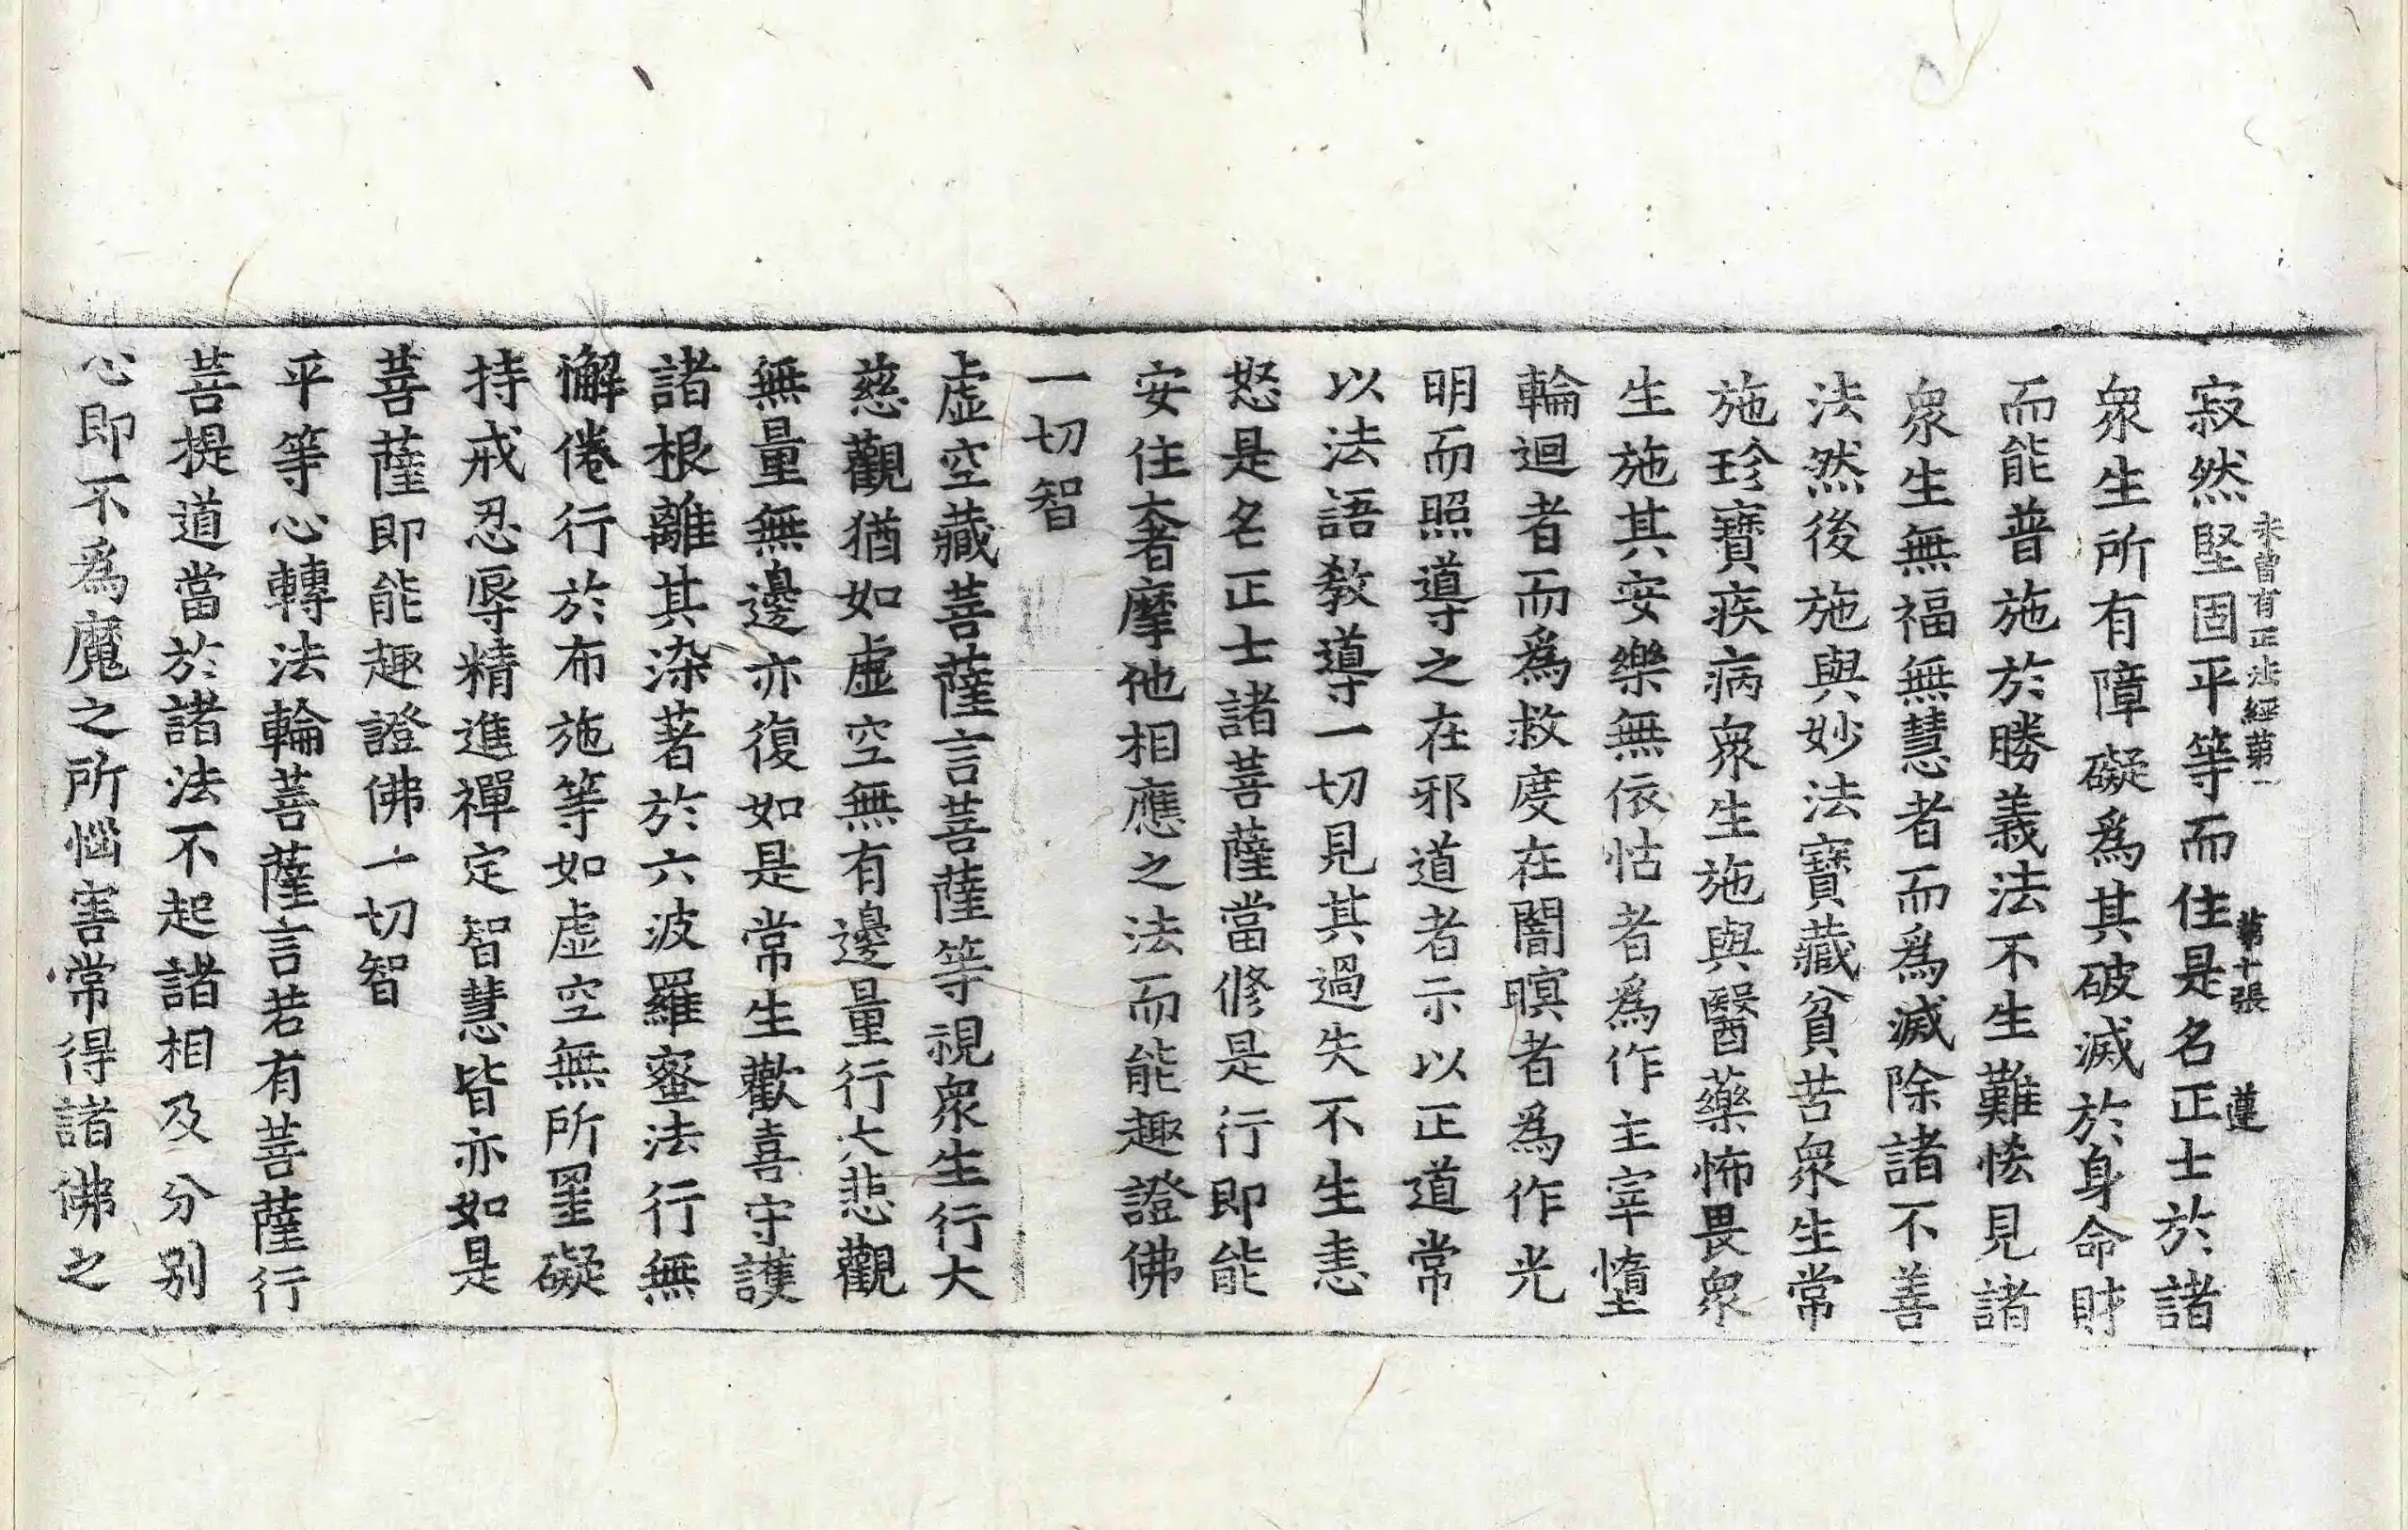 未曾有正法經第一 第十張 薑
寂然堅固平等而住是名正士於諸
衆生所有障礙爲其破滅於身命財
而能普施於勝義法不生難恡見諸
衆生無福無慧者而爲滅除諸不善
法然後施與妙法寶藏貧苦衆生常
施珍寶疾病衆生施與醫藥怖畏衆
生施其安樂無依怙者爲作主宰墮
輪迴者而爲救度在闇暝者爲作光
明而照導之在邪道者示以正道常
以法語教導一切見其過失不生恚
怒是名正士諸菩薩當修是行即能
安住奢摩他相應之法而能趣證佛
一切智
虛空藏菩薩言菩薩等視衆生行大
慈觀猶如虛空無有邊量行大悲觀
無量無邊亦復如是常生歡喜守護
諸根離其染著於六波羅蜜法行無
懈倦行於布施等如虛空無所罣礙
持戒忍辱精進禪定智慧皆亦如是
菩薩即能趣證佛一切智
平等心轉法輪菩薩言若有菩薩行
菩提道當於諸法不起諸相及分別
心即不爲魔之所惱害常得諸佛之